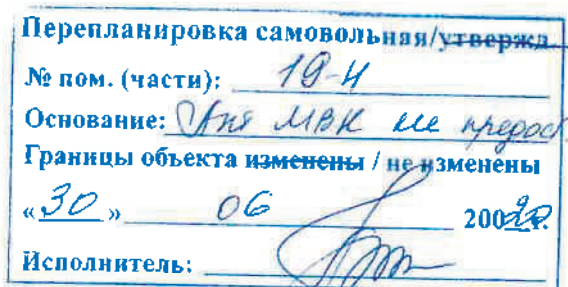 Перепланировка самовольная/утвержд
№ пом. (части): 19-Н
Основание: Акт МВК не предост.
Границы объекта изменены / не изменены
«30» 06 200 г.
Исполнитель: